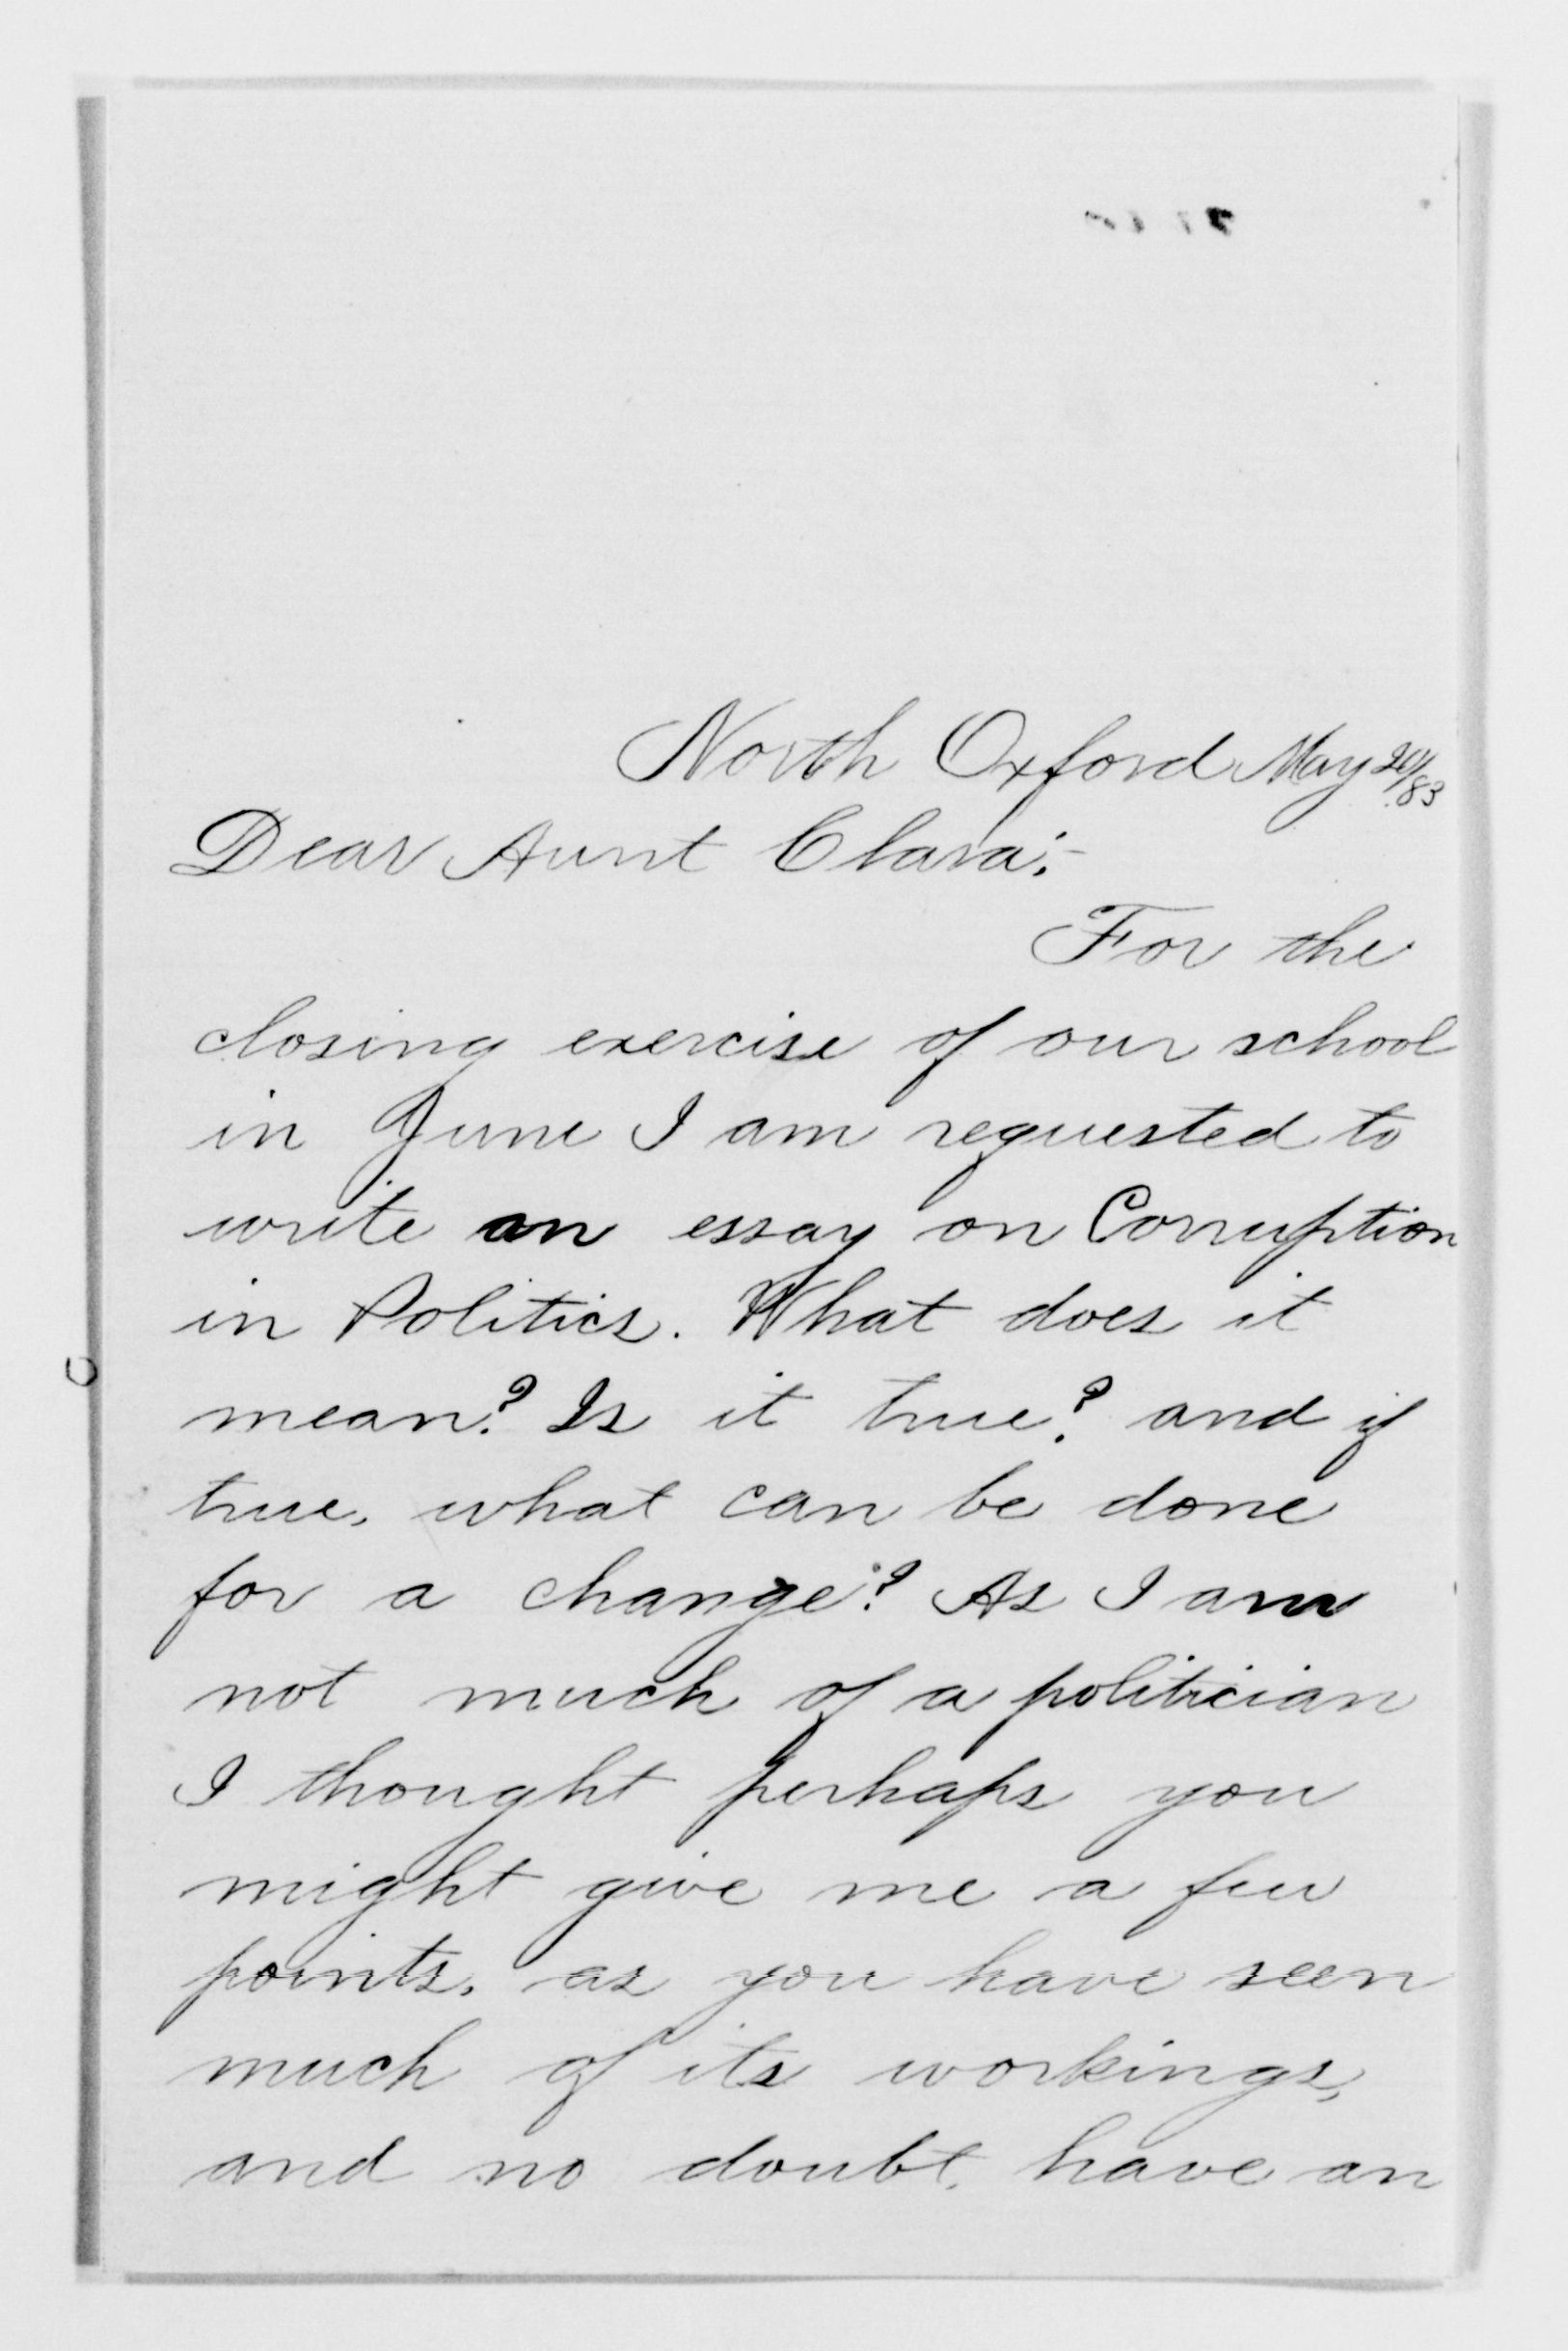 North Oxford May 20/83
Dear Aunt Clara:-
For the
closing exercise of our school
in June I am requested to
write an essay on Corruption
in Politics. What does it
mean? Is it true? and if
true, what can be done
for a change? As I am
not much of a politician
I thought perhaps you
might give me a few
points, as you have seen
much of its workings,
and no doubt, have an